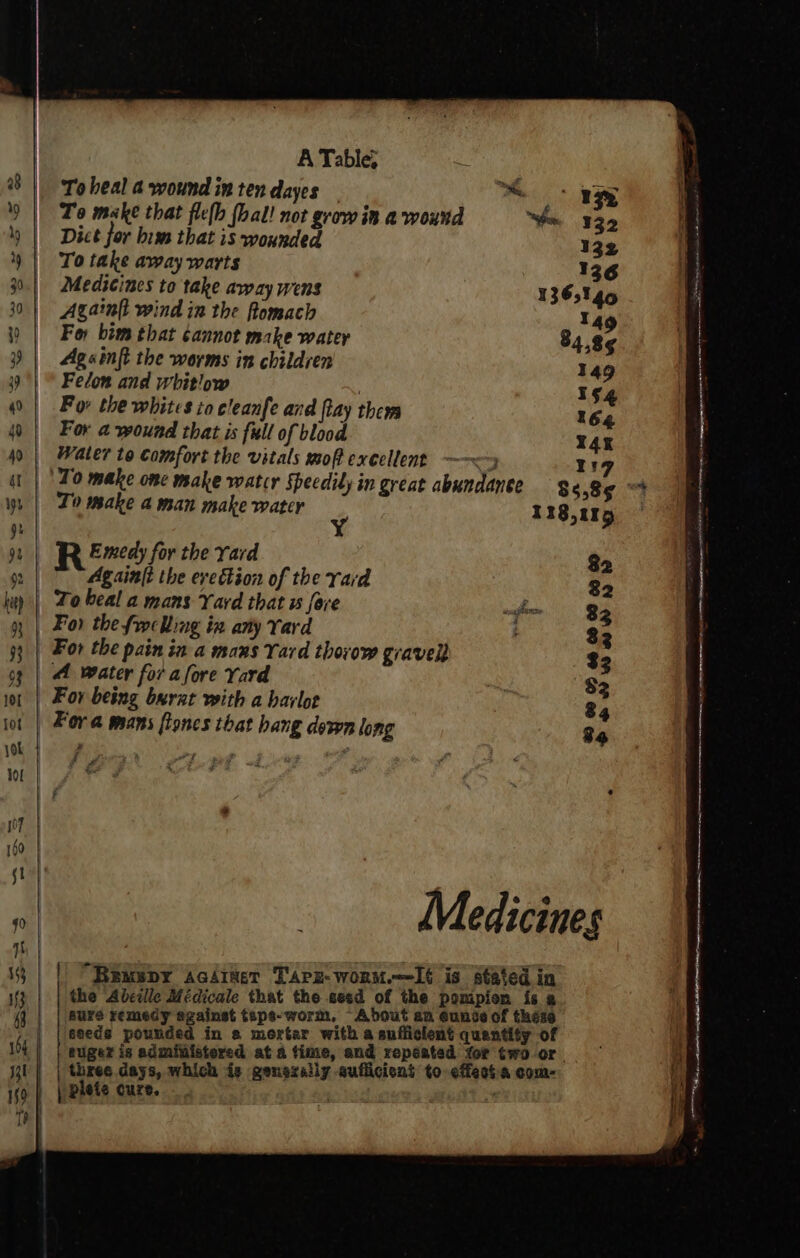 A Table;
To heal a wound in ten dayes 132
To make that flesh shall not grow in a wound 132
Diet for him that is wounded 132
To take away warts 136
Medicines to take away wens 136,140
Against wind in the stomach 149
For him that cannot make water 84,85
Against the worms in children 149
Felon and whitlow 154
For the whites to cleanse and stay them 164
For a wound that is full of blood 141
Water to comfort the vitals most excellent 117
To make one make water speedily in great abundance 84,85
To make a man make water 118,119
Y
REmedy for the Yard 82
Against the erection of the Yard 82
To heal a mans Yard that is sore 82
For the swelling in any Yard 83
For the pain in a mans Yard thorow gravell 83
A water for a sore Yard 83
For being burnt with a harlot 84
For a mans stones that hang down long 84
Medicines
REMEDY AGAINST TAPE-WORM.—It is stated in
the Abeille Médicale that the seed of the pompion is a
sure remedy against tape-worm. About an ounce of these
seeds pounded in a mortar with a sufficient quantity of
sugar is administered at a time, and repeated for two or
three days, which is generally sufficient to effect a com-
plete cure.